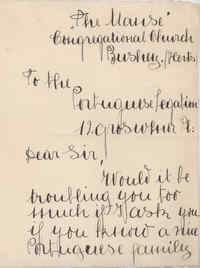 "The Manse"
Congregational Church
Bushey, Herts.
To the
Portuguese Legation
12 Grosvenor
Dear Sir,
Would it be
troubling you too
much if I ask you
if you know a nice
Portuguese family